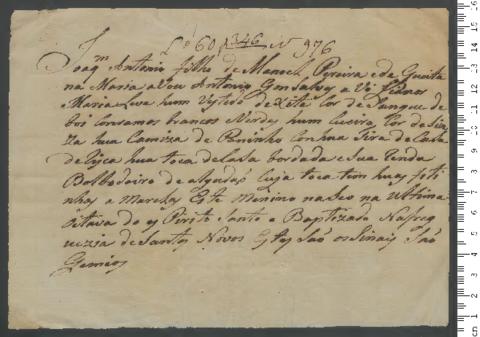 Lº 60 f 346 Nº 976
Joaqᵐ Antonio filho de Manoel Pereira e de Quita
na Maria a Veu Antonio Gonsalves a Vi
Maria Leva hum Vestido de Xita Cor de Sangue de
boi Com ramos brancos Verdes hum Cueiro Cor de Sin
za hua Camiza de Paninho Com hua tira de Casa
de Liça hua touca de Casa bordada e Sua
de algudaõ Cuja toca tem huas fiti
nhas a Marelas Este Menino naseo na Ultima
Oitava do es Prito Santo e Baptizado Na freg
uezia de Santos Novos Estes Saõ os Sinais Saõ
Gemios